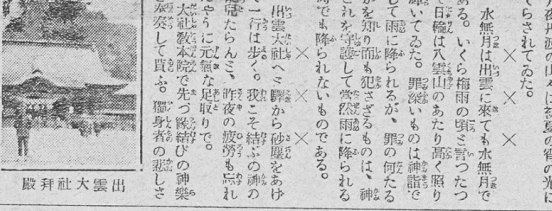 てらされてゐた。
×　×　×
水無月は出雲に來ても水無月で
ある。いくら梅雨の頃と言つたつ
て日輪は八雲山のあたり高く照り
輝いてゐた。罪深いものは神詣で
して雨に降られるが、罪の何たる
かを知り而も犯さざるものは、神
これを守護して當然雨に降られる
時でも降られないものである。
×　×　×
出雲大社へと驛から砂塵をあげ
一行は歩く。我こそ結ぶの神の
たらんと、昨夜の疲勞も忘れ
やうに元氣な足取りで。
大社教本院で先づ緣結びの神樂
奏して貰ふ。獨身者の悲しさ
出雲大社拜殿